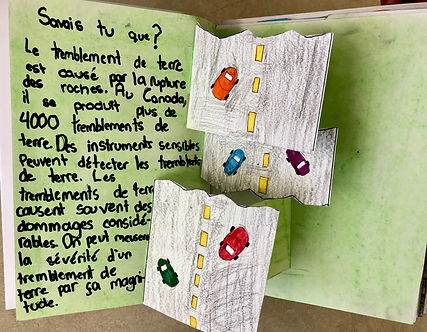 Savais tu que?
Le tremblement de terre
est causé par la rupture
des roches. Au Canada,
il se produit plus de
4000 tremblements de
terre. Des instruments sensibles
peuvent détecter les tremblements
de terre. Les
tremblements de terre
causent souvent des
dommages considé-
rables. On peut mesurer
la sévérité d'un
tremblement de
terre par sa magni-
tude.